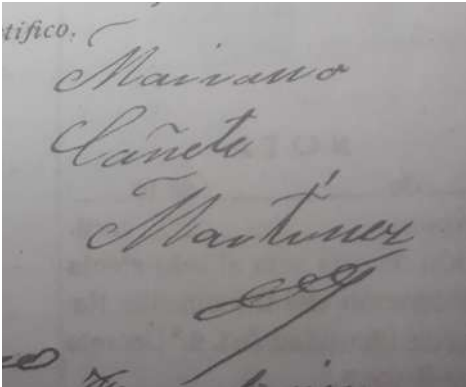 tífico,
Mariano
Cañete
Martínez